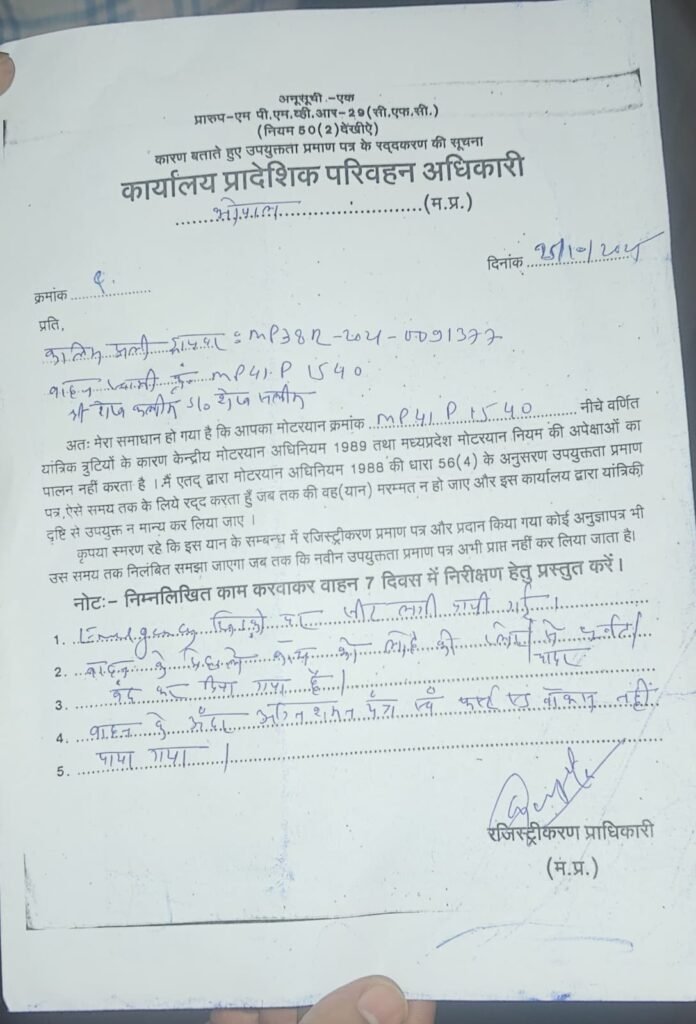 अनूसूची -एक
प्रारुप-एम पी.एम.व्ही.आर-29(सी.एफ.सी.)
(नियम 50(2)देखीऐ)
कारण बताते हुए उपयुक्तता प्रमाण पत्र के रद्दकरण की सूचना
कार्यालय प्रादेशिक परिवहन अधिकारी
भोपाल (म.प्र.)
दिनांक 25/10/2025
क्रमांक
प्रति,
MP38R-202
वाहन स्वामी MP41P1540
श्री शेख कलीम S/o शेख सलीम
अतः मेरा समाधान हो गया है कि आपका मोटरयान क्रमांक MP41P1540 नीचे वर्णित
यांत्रिक त्रुटियों के कारण केन्द्रीय मोटरयान अधिनियम 1989 तथा मध्यप्रदेश मोटरयान नियम की अपेक्षाओं का
पालन नहीं करता है । मैं एतद् द्वारा मोटरयान अधिनियम 1988 की धारा 56(4) के अनुसरण उपयुक्तता प्रमाण
पत्र, ऐसे समय तक के लिये रद्द करता हूँ जब तक की वह(यान) मरम्मत न हो जाए और इस कार्यालय द्वारा यांत्रिकी
दृष्टि से उपयुक्त न मान्य कर लिया जाए ।
कृपया स्मरण रहे कि इस यान के सम्बन्ध में रजिस्ट्रीकरण प्रमाण पत्र और प्रदान किया गया कोई अनुज्ञापत्र भी
उस समय तक निलंबित समझा जाएगा जब तक कि नवीन उपयुक्तता प्रमाण पत्र अभी प्राप्त नहीं कर लिया जाता है।
नोटः- निम्नलिखित काम करवाकर वाहन 7 दिवस में निरीक्षण हेतु प्रस्तुत करें ।
1. खिड़की पर सीट लगी पायी गई।
2. वाहन के पिछले कांच को लोहे की प्लेट
चादर
3. बंद कर दिया गया है।
4. वाहन के अंदर अग्निशमन यंत्र एवं फर्स्ट एड बॉक्स नहीं
5. पाया गया।
रजिस्ट्रीकरण प्राधिकारी
(म.प्र.)